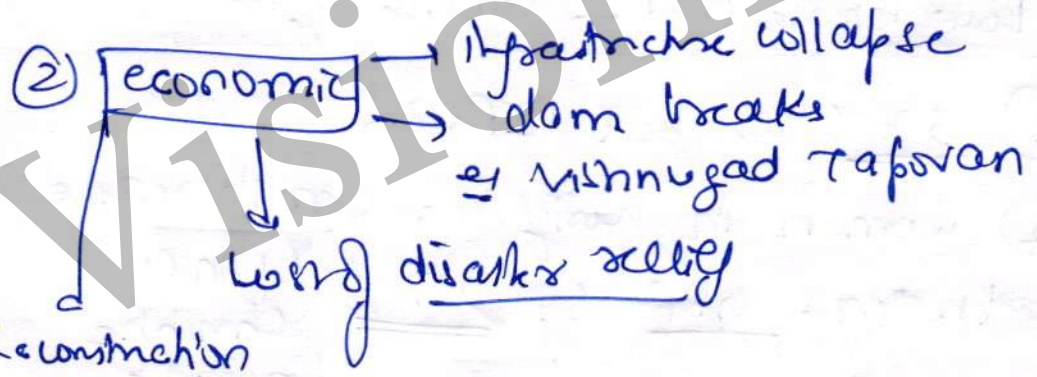 ② economic → infrastructure collapse
→ dam breaks
eg Vishnugad Tapovan
cost of disaster relief
reconstruction
Vision